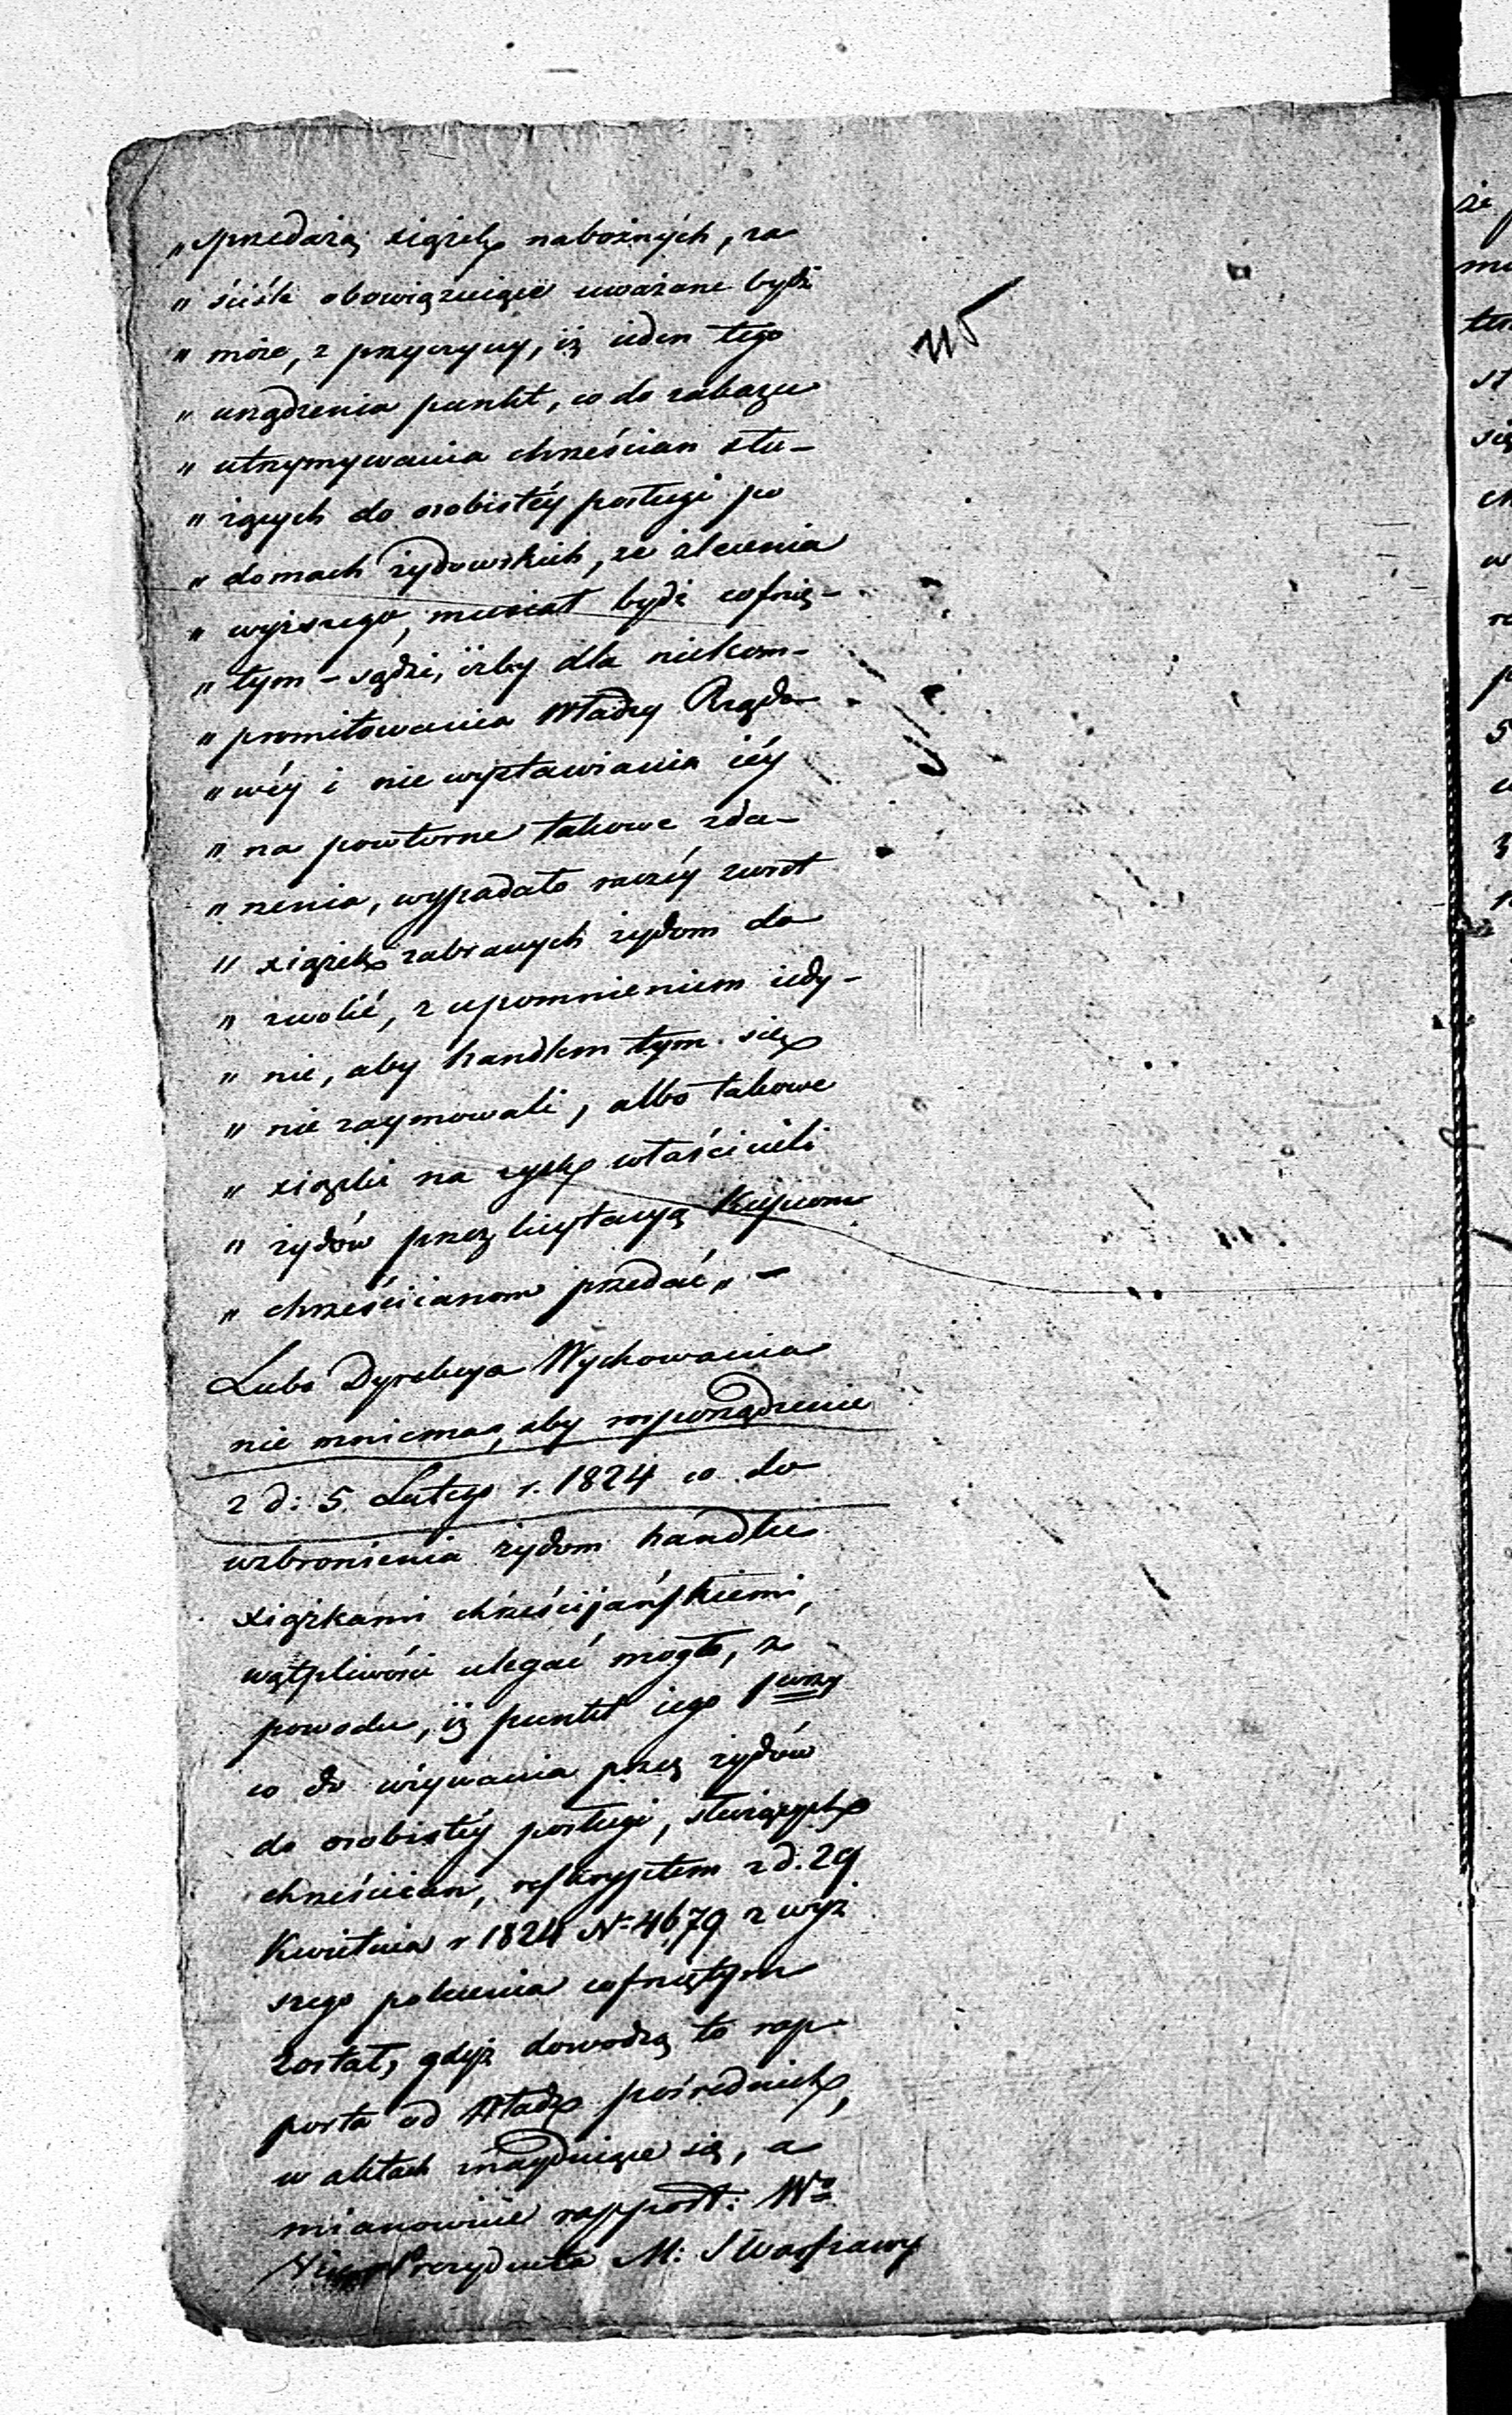 „ sprzedażą xiążek nabożnych, za
„ ściśle obowiązuiące uważane bydź
„ może, z przyczyny, iż ieden tego
„ urządzenia punkt, co do zakazu
„ utrzymywania chrześcian słu-
„ żących do osobistéy posługi po
„ domach żydowskich, ze zlecenia
„ wyższego, musiał bydź cofnię-
„ tym – sądzi, iżby dla niekom-
„ promitowania Władzy Rządo-
„ wéy i nie wystawiania iéy
„ na powtórne takowe zda-
„ rzenia, wypadało raczéy zwrot
„ xiążek zabranych żydom do
„ zwolić, z upomnieniem iedy-
„ nie, aby handlem tym się
„ nie zaymowali, albo takowe
„ xiążki na zysk właścicieli
„ żydów przez licytacyą Kupcom
„ chrześcianom przedać „ –
Lubo Dyrekcya Wychowania
nie mniema, aby rozporządzenie
z d: 5. Lutego r. 1824 co do
wzbronienia żydom handlu
xiążkami chrześcijańskiemi,
wątpliwości ulegać mogło, z
powodu, iż punkt iego 1wszy
co do używania przez żydów
do osobistéy posługi, służących
chrześcian, reskryptem z d. 29
Kwietnia r 1824 N= 4679 z wyż
szego polecenia cofniętym
został, gdyż dowodzą to rap
porta od Władz pośrednich,
w aktach znayduiące się, a
mianowicie rapport: Wo
Prezydenta M: S Warszawy
115